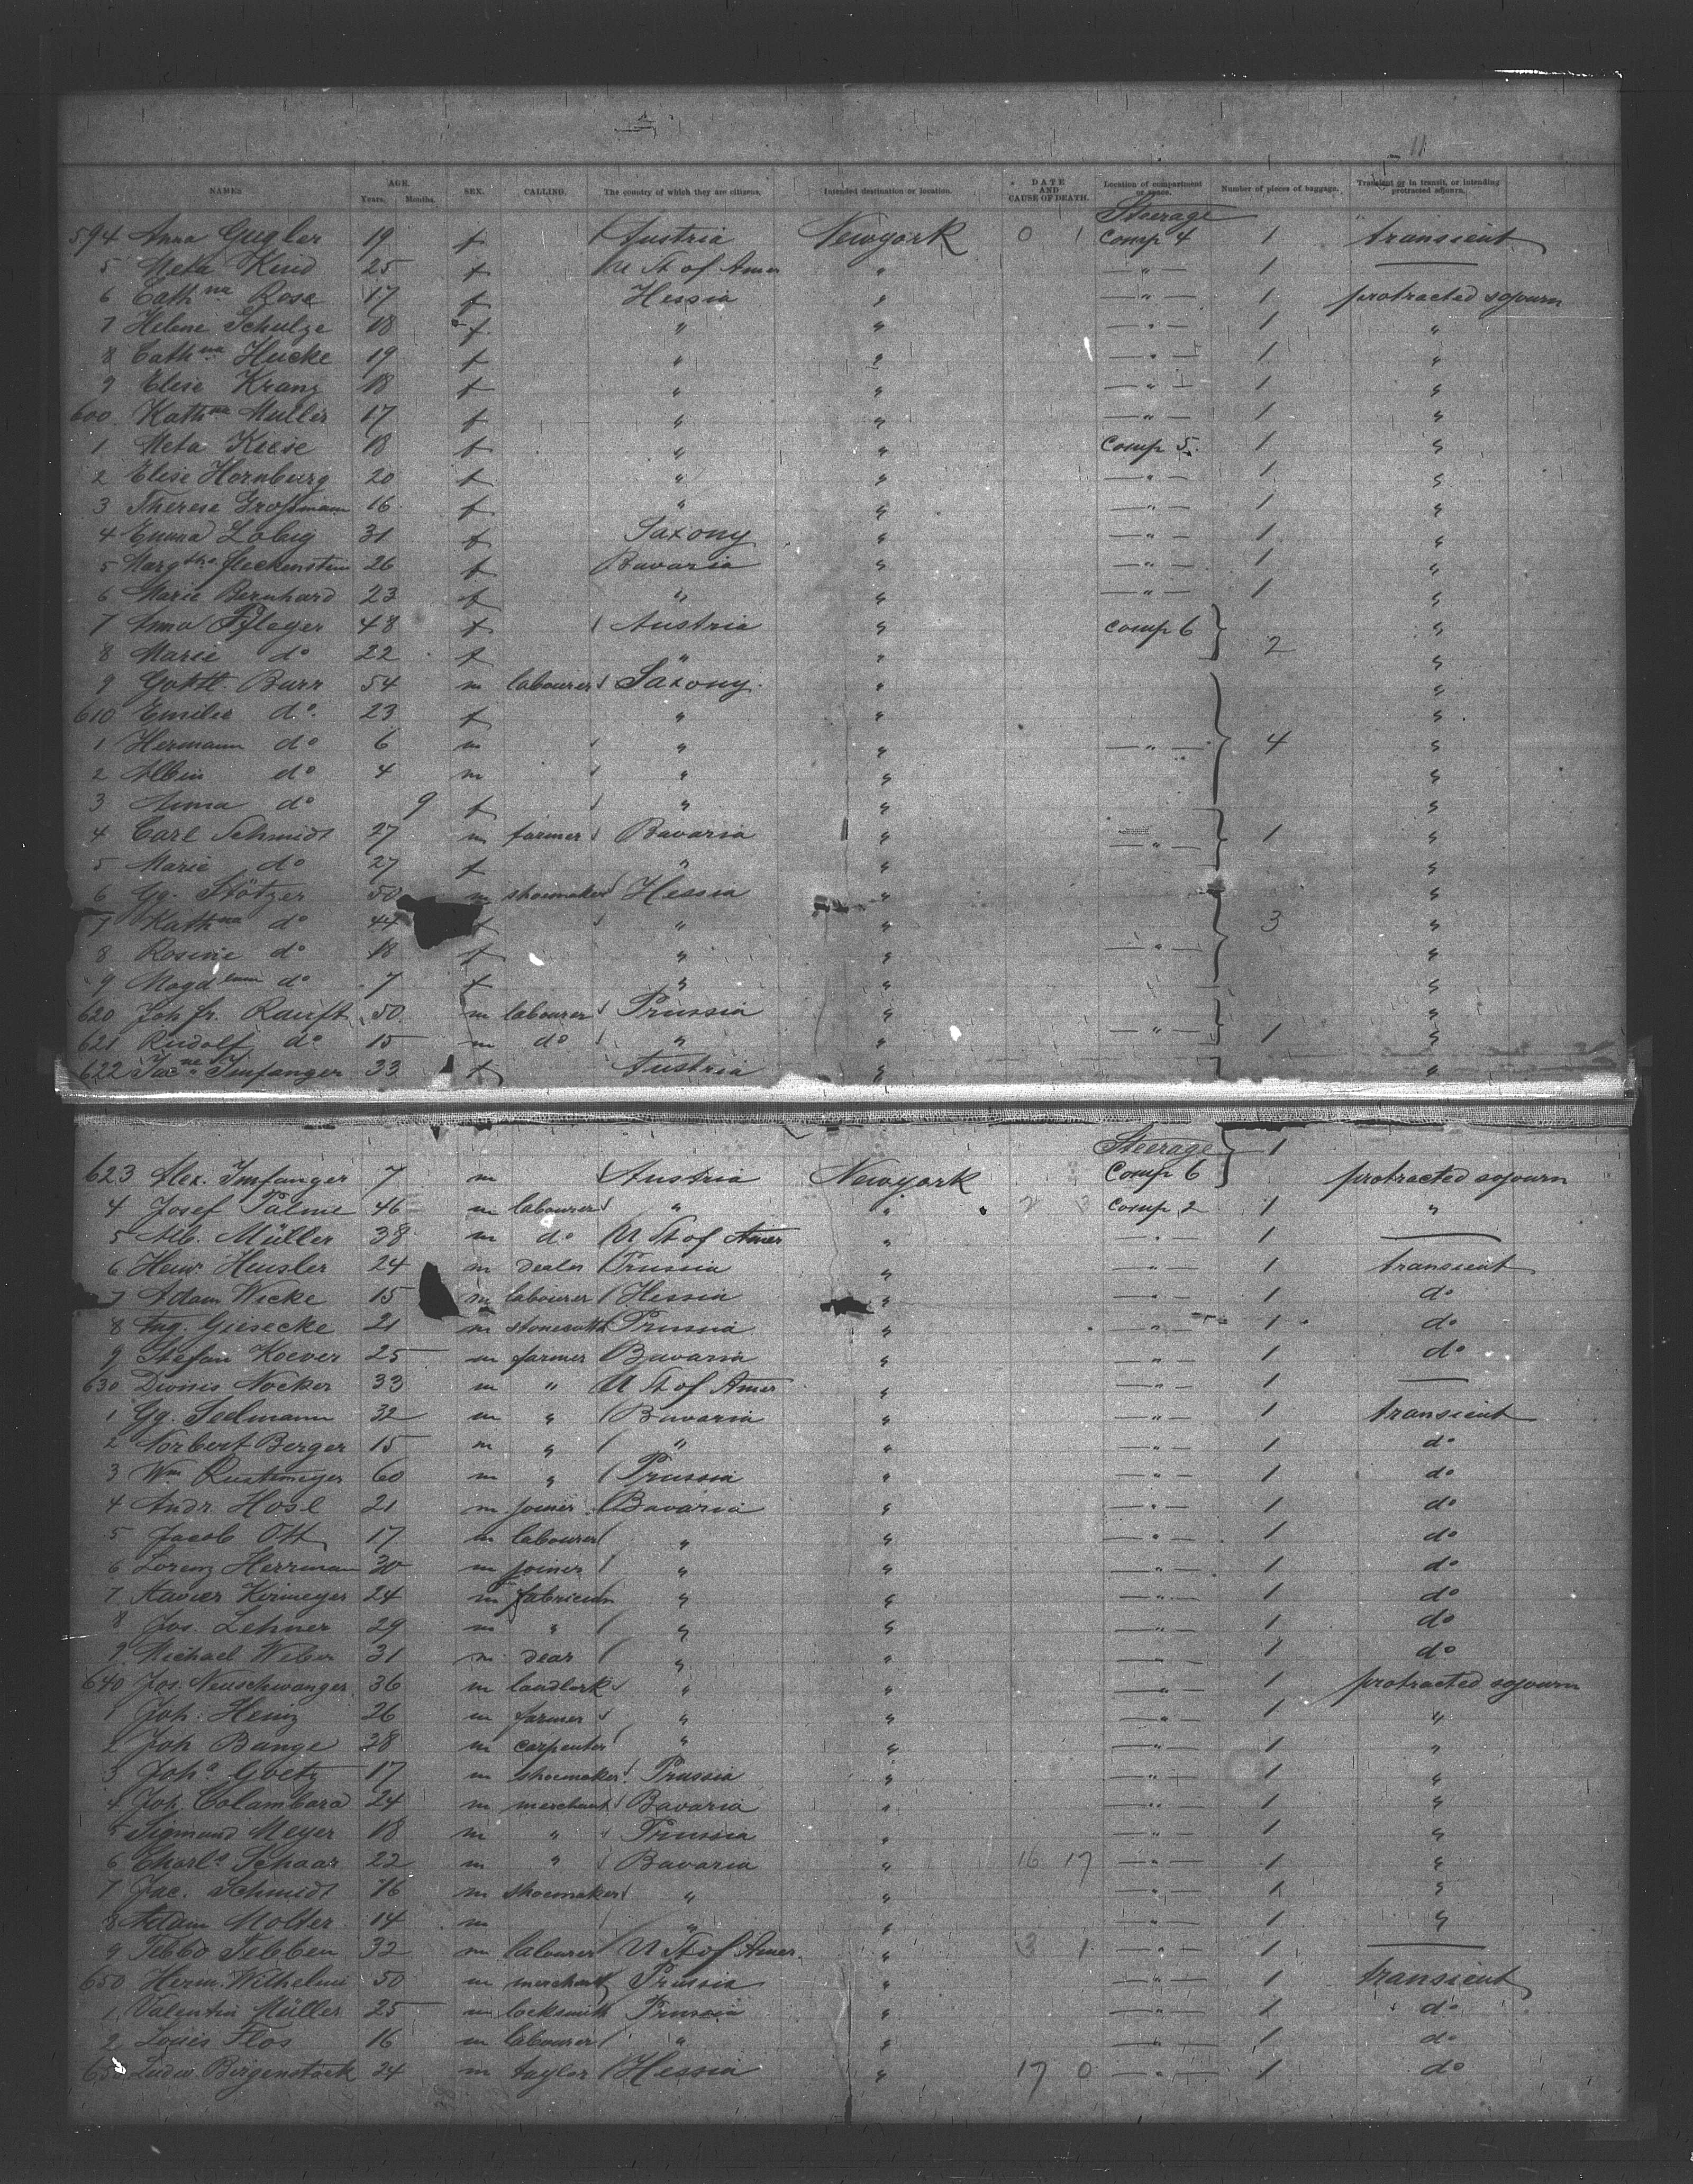 11
NAMES AGE. Years. Months. SEX. CALLING. The country of which they are citizens. Intended destination or location. DATE AND CAUSE OF DEATH. Location of compartment or space. Number of pieces of baggage. Transient or in transit, or intending protracted sojourn.
Steerage
594 Anna Gugler 19 f Austria Newyork 0 1 Comp 4 1 transient
5 Meta Kind 25 f U St of Amer " — " — 1 —
6 Cath na Rose 17 f Hessia " — " — 1 protracted sojourn
7 Helene Schulze 18 f " " — " — 1 "
8 Cath na Hucke 19 f " " — " — 1 "
9 Elise Kranz 18 f " " — " — 1 "
600 Kath na Muller 17 f " " — " — 1 "
1 Meta Keese 18 f " " Comp 5 1 "
2 Elise Hornburg 20 f " " — " — 1 "
3 Therese Großmann 16 f " " — " — 1 "
4 Emma Lobig 31 f Saxony " — " — 1 "
5 Marg tha Fleckenstein 26 f Bavaria " — " — 1 "
6 Marie Bernhard 23 f " " — " — 1 "
7 Anna Pfleger 48 f Austria " Comp 6 2 "
8 Marie do 22 f " " "
9 Gottl. Burr 54 m labourer Saxony " "
610 Emilie do 23 f " " "
1 Hermann do 6 m " " — " — 4 "
2 Albin do 4 m " " "
3 Anna do 9 f " " "
4 Carl Schmidt 27 m farmer Bavaria " — " — 1 "
5 Marie do 27 f " " "
6 Gg. Stötzer 50 m shoemaker Hessia " "
7 Kath na do 44 f " " 3 "
8 Rosine do 18 f " " — " — "
9 Magd lena do 7 f " " "
620 Joh fr. Ranft 50 m labourer Prussia " "
621 Rudolf do 15 m do " " — " — 1 "
622 Jac ne Imfanger 33 f Austria " "
Steerage 1
623 Alex. Imfanger 7 m Austria Newyork Comp 6 protracted sojourn
4 Josef Palme 46 m labourer " " 2 3 Comp 2 1 "
5 Alb. Müller 38 m do U St of Amer " — " — 1 —
6 Heinr. Heusler 24 m dealer Prussia " — " — 1 transient
7 Adam Wicke 15 m labourer Hessia " — " — 1 do
8 Aug. Giesecke 21 m stonecutter Prussia " — " — 1 do
9 Stefan Koever 25 m farmer Bavaria " — " — 1 do
630 Dionis Nocker 33 m " U St of Amer " — " — 1 —
1 Gg. Sedmann 32 m " Bavaria " — " — 1 transient
2 Norbert Berger 15 m " " " — " — 1 do
3 Wm Rustemeyer 60 m " Prussia " — " — 1 do
4 Andr. Hosl 21 m joiner Bavaria " — " — 1 do
5 Jacob Ott 17 m labourer " " — " — 1 do
6 Lorenz Herrmann 30 m joiner " " — " — 1 do
7 Xavier Kirmeyer 24 m " " — " — 1 do
8 Jos. Lehner 29 m " " " — " — 1 do
9 Michael Weber 31 m " " — " — 1 do
640 Jos. Neuschwanger 36 m " " — " — 1 protracted sojourn
1 Joh. Heinz 26 m farmer " " — " — 1 "
2 Joh Bange 28 m carpenter " " — " — 1 "
3 Joh s Goetz 17 m shoemaker Prussia " — " — 1 "
4 Joh. Colambara 24 m merchant Bavaria " — " — 1 "
5 Sigmund Meyer 18 m " Prussia " — " — 1 "
6 Charl s Schaar 22 m " Bavaria " 16 17 — " — 1 "
7 Jac. Schmidt 16 m shoemaker " " — " — 1 "
8 Adam Molter 14 m " " — " — 1 "
9 Tebbo Tebben 32 m labourer U St of Amer. " 3 1 — " — 1 —
650 Herm. Wilhelmi 50 m merchant Prussia " — " — 1 transient
1 Valentin Müller 25 m locksmith Prussia " — " — 1 do
2 Louis Flos 16 m labourer " " — " — 1 do
653 Ludw Birgenstock 24 m taylor Hessia " 17 0 — " — 1 do